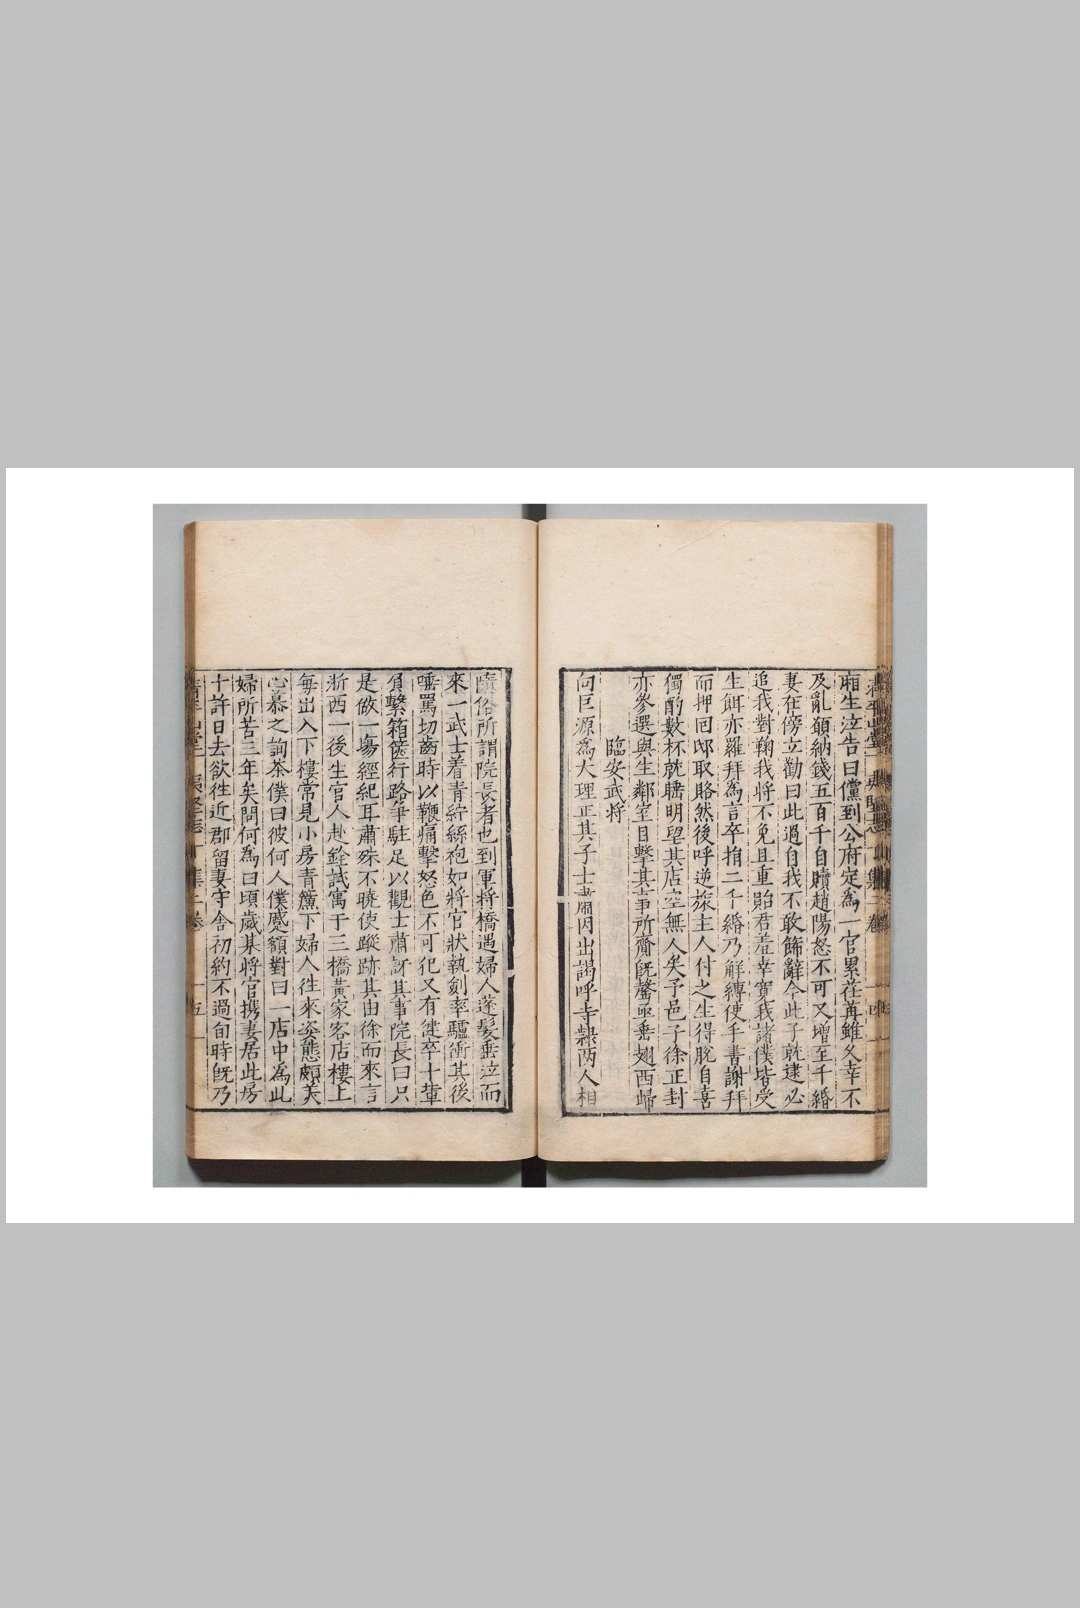 廂生泣告曰儻到公府定爲一官累荏苒雖久幸不
及亂願納錢五百千自贖趙陽怒不可又增至千緡
妻在傍立勸曰此過自我不敢飾辭今此子就逮必
追我對鞠我將不免且重貽君羞幸寛我諸僕皆受
生餌亦羅拜爲言卒捐二千緡乃解縛使手書謝拜
而押回邸取賂然後呼逆旅主人付之生得脫自喜
獨酌數杯就睡明望其店空無人矣予邑子徐正封
亦參選與生鄰室目擊其事所齎旣罄亟垂翅西歸
臨安武將
向巨源爲大理正其子士肅因出謁呼寺隸两人相
隨俗所謂院長者也到軍將橋遇婦人蓬髮垂泣而
來一武士着青紵絲袍如將官狀執劍牽驢衝其後
唾罵切齒時以鞭痛擊怒色不可犯又有健卒十輩
負擊箱篋行路爭駐足以觀士肅訝其事院長曰只
是做一場經紀耳肅殊不曉使蹤跡其由徐而來言
浙西一後生官人赴銓試寓于三橋黃家客店樓上
每出入下樓常見小房青簾下婦人往來姿態頗美
心慕之詢茶僕曰彼何人僕蹙額對曰一店中爲此
婦所苦三年矣問何爲曰頃歲某將官携妻居此房
十許日去欲往近郡留妻守舍初約不過旬時旣乃